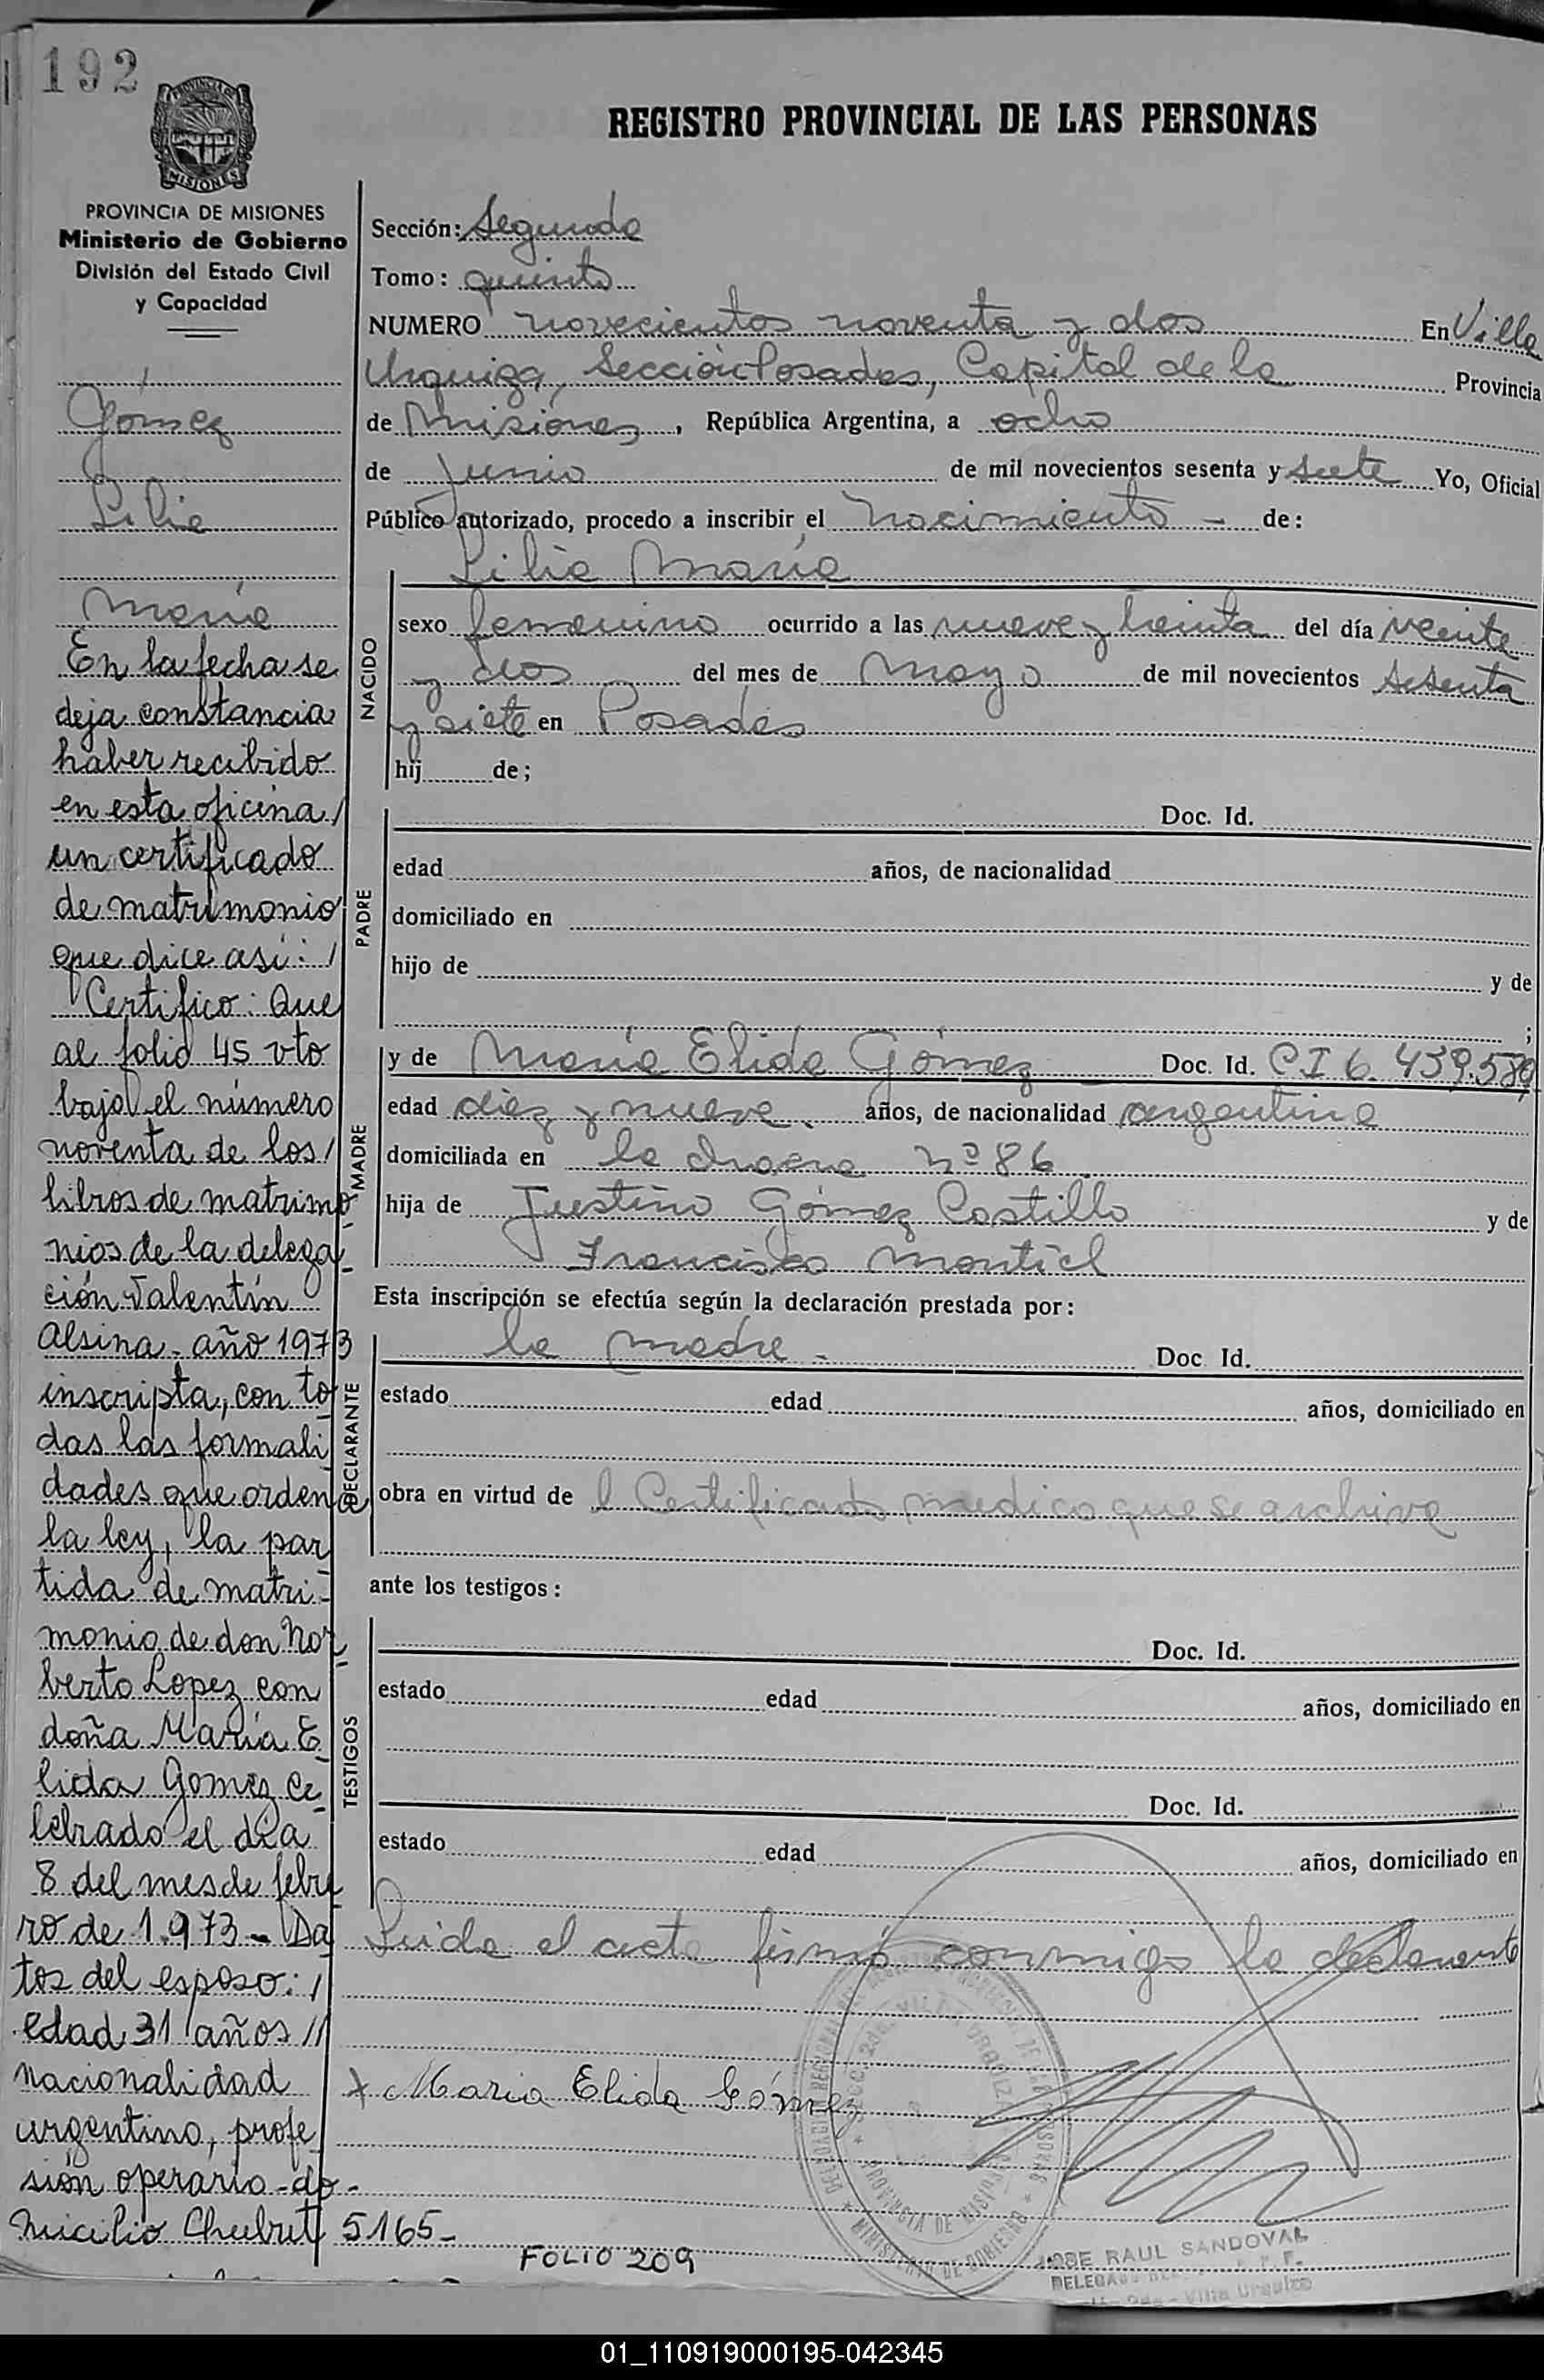 192
REGISTRO PROVINCIAL DE LAS PERSONAS
MISIONES
PROVINCIA DE MISIONES
Ministerio de Gobierno
División del Estado Civil
y Capacidad
Gómez
Lilia
María
En la fecha se
deja constancia
haber recibido
en esta oficina /
un certificado
de matrimonio
que dice así: /
Certifico: Que
al folio 45 vto
bajo el número
noventa de los /
libros de matrimo
nios de la delega-
ción Valentín
Alsina - año 1973
inscripta, con to
das las formali
dades que ordena
la ley, la par
tida de matri-
monio de don Nor-
berto Lopez con
doña María E-
lida Gomez ce-
lebrado el día
8 del mes de febre
ro de 1.973 - Da
tos del esposo: /
edad 31 años //
nacionalidad
argentino, profe
sión operario - do-
micilio Chubut 5165 -
Sección: Segunda
Tomo: quinto
NUMERO novecientos noventa y dos En Villa
Urquiza, Sección Posadas, Capital de la Provincia
de Misiones, República Argentina, a ocho
de Junio de mil novecientos sesenta y siete Yo, Oficial
Público autorizado, procedo a inscribir el nacimiento - de:
Lilia María
NACIDO
sexo femenino ocurrido a las nueve y treinta del día veinte
y dos del mes de Mayo de mil novecientos sesenta
y siete en Posadas
hij de;
PADRE
Doc. Id.
edad años, de nacionalidad
domiciliado en
hijo de y de
;
MADRE
y de María Elida Gómez Doc. Id. CI 6.439.589
edad diez y nueve años, de nacionalidad argentina
domiciliada en la chacra nº 86
hija de Justino Gómez Castillo y de
Francisca Montiel
Esta inscripción se efectúa según la declaración prestada por:
DECLARANTE
la madre - Doc. Id.
estado edad años, domiciliado en
obra en virtud de l Certificado medico que se archiva
ante los testigos:
TESTIGOS
Doc. Id.
estado edad años, domiciliado en
Doc. Id.
estado edad años, domiciliado en
Leida el acta firmó conmigo la declarante
x Maria Elida Gómez
PROVINCIA DE MISIONES
MINISTERIO DE GOBIERNO
FOLIO 209
JOSE RAUL SANDOVAL
Villa Urquiza
01_110919000195-042345